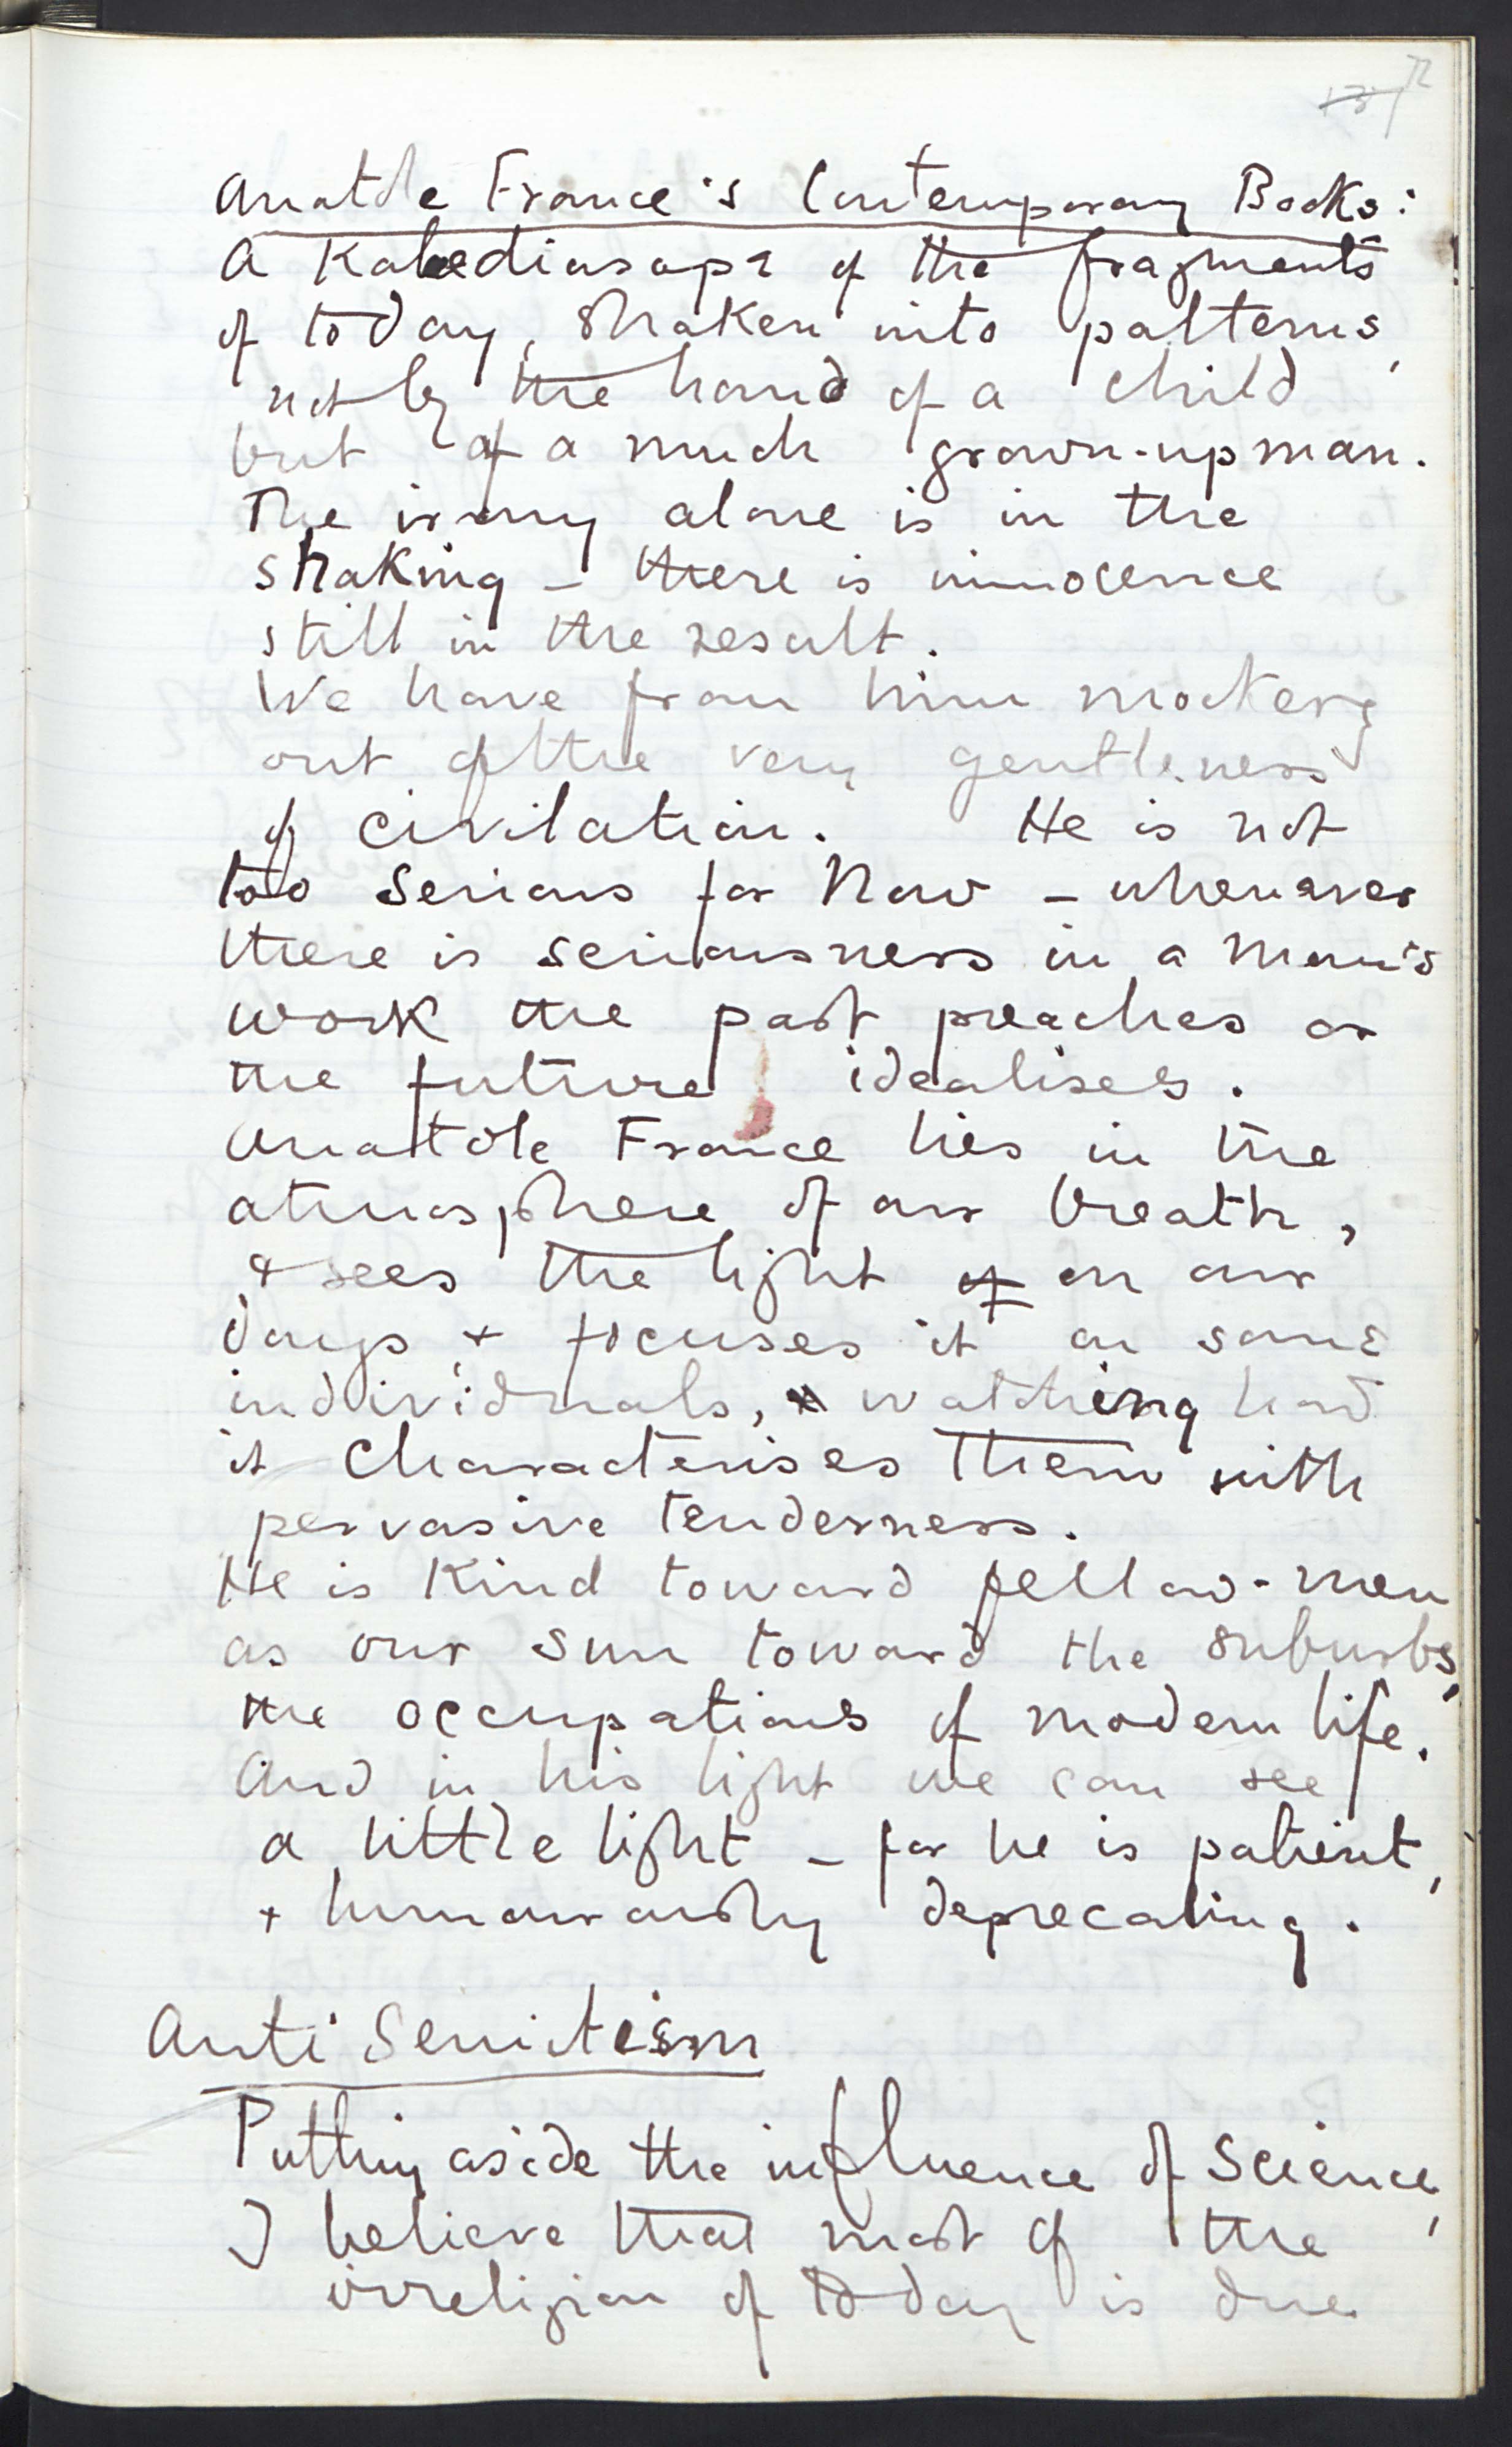 72
Anatole France's Contemporary Books:
A Kaleediasope of the fragments
of today, shaken into patterns,
not by the hand of a child
but of a much grown-up man.
The irony alone is in the
shaking - there is innocence
still in the result.
We have from him mockery
out of the very gentleness
of civilation. He is not
too serious for Now - whenever
there is seriousness in a man's
work the past preaches or
the future idealises.
Anatole France lies in the
atmosphere of our breath,
& sees the light of on our
days & focuses it on some
individuals, watching how
it characterises them with
pervasive tenderness.
He is kind toward fellow-men
as our sun toward the suburbs,
the occupations of modern life.
And in his light we can see
a little light - for he is patient,
+ humourously deprecating.
Anti Semitism
Putting aside the influence of science,
I believe that most of the
irreligion of today is due